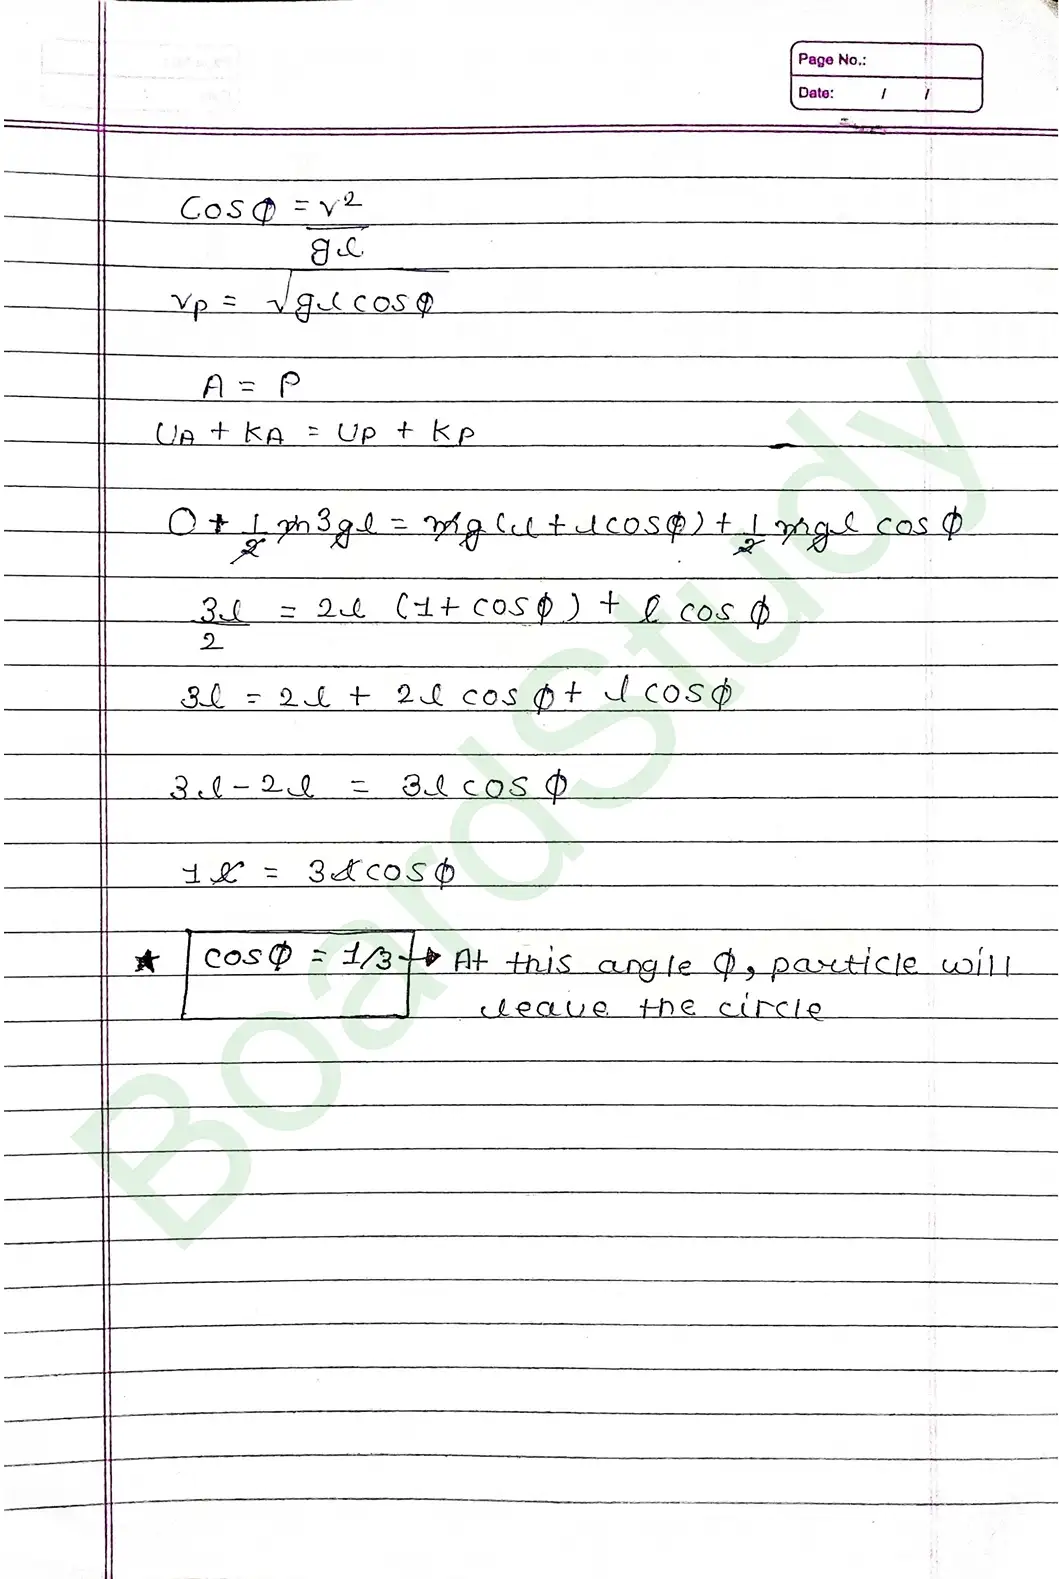 Page No.:
Date: / /
cos φ = v²/gl
vp = √gl cos φ
A = P
UA + KA = UP + KP
0 + 1/2 m3gl = mg(l + l cos φ) + 1/2 mgl cos φ
3l/2 = 2l (1 + cos φ) + l cos φ
3l = 2l + 2l cos φ + l cos φ
3l - 2l = 3l cos φ
1l = 3l cos φ
★ cos φ = 1/3 → At this angle φ, particle will
leave the circle
BoardStudy